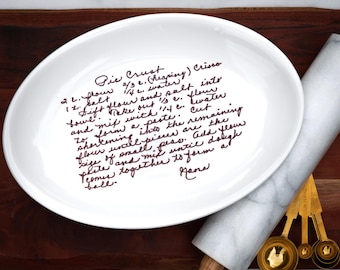 Pie Crust
2 c. flour 2/3 c. (heaping) Crisco
1 t. salt 1/4 c. water
Sift flour and salt into
bowl. Take out 1/3 c. flour
and mix with 1/4 c. water
to form a paste. Cut
shortening into the remaining
flour until pieces are the
size of small peas. Add flour
paste and mix until dough
comes together to form a
ball. Nana